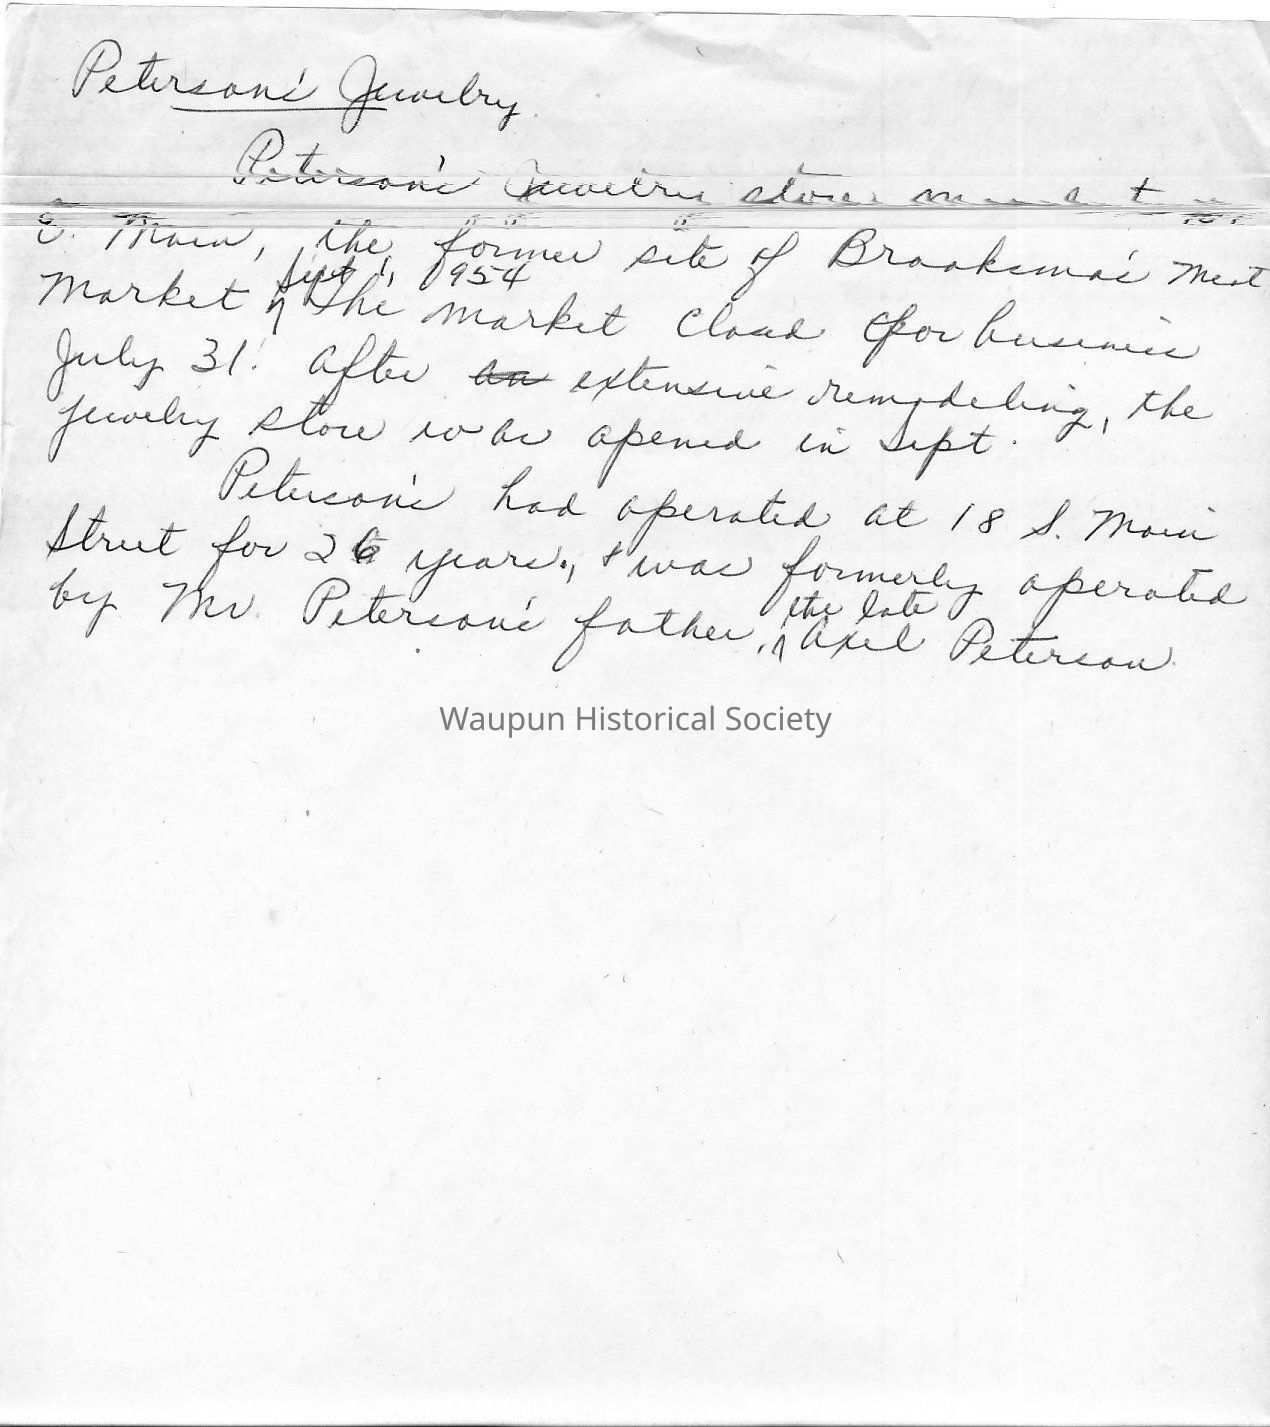 Peterson's Jewelry
Peterson's Jewelry store
E. Main, the former site of Brooksma's Meat
Sept 1, 1954
Market ^ The market closed for business
July 31. After an extensive remodeling, the
jewelry store was opened in Sept.
Peterson's had operated at 18 S. Main
Street for 26 years., & was formerly operated
the late
by Mr. Peterson's father, ^ Axel Peterson
Waupun Historical Society